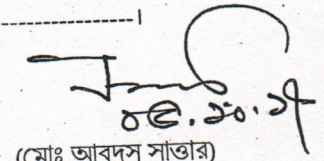 ---------------------।
০৫.১০.১৭
(মোঃ আবদুস সাত্তার)